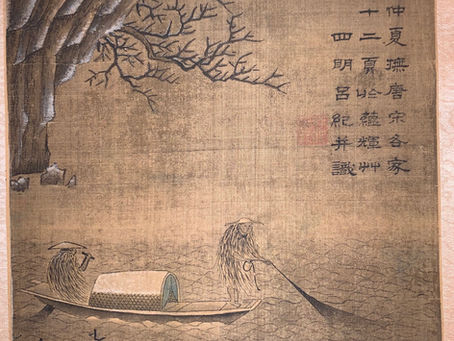 仲夏撫唐宋各家
十二頁於蘊輝艸
四明呂紀并識